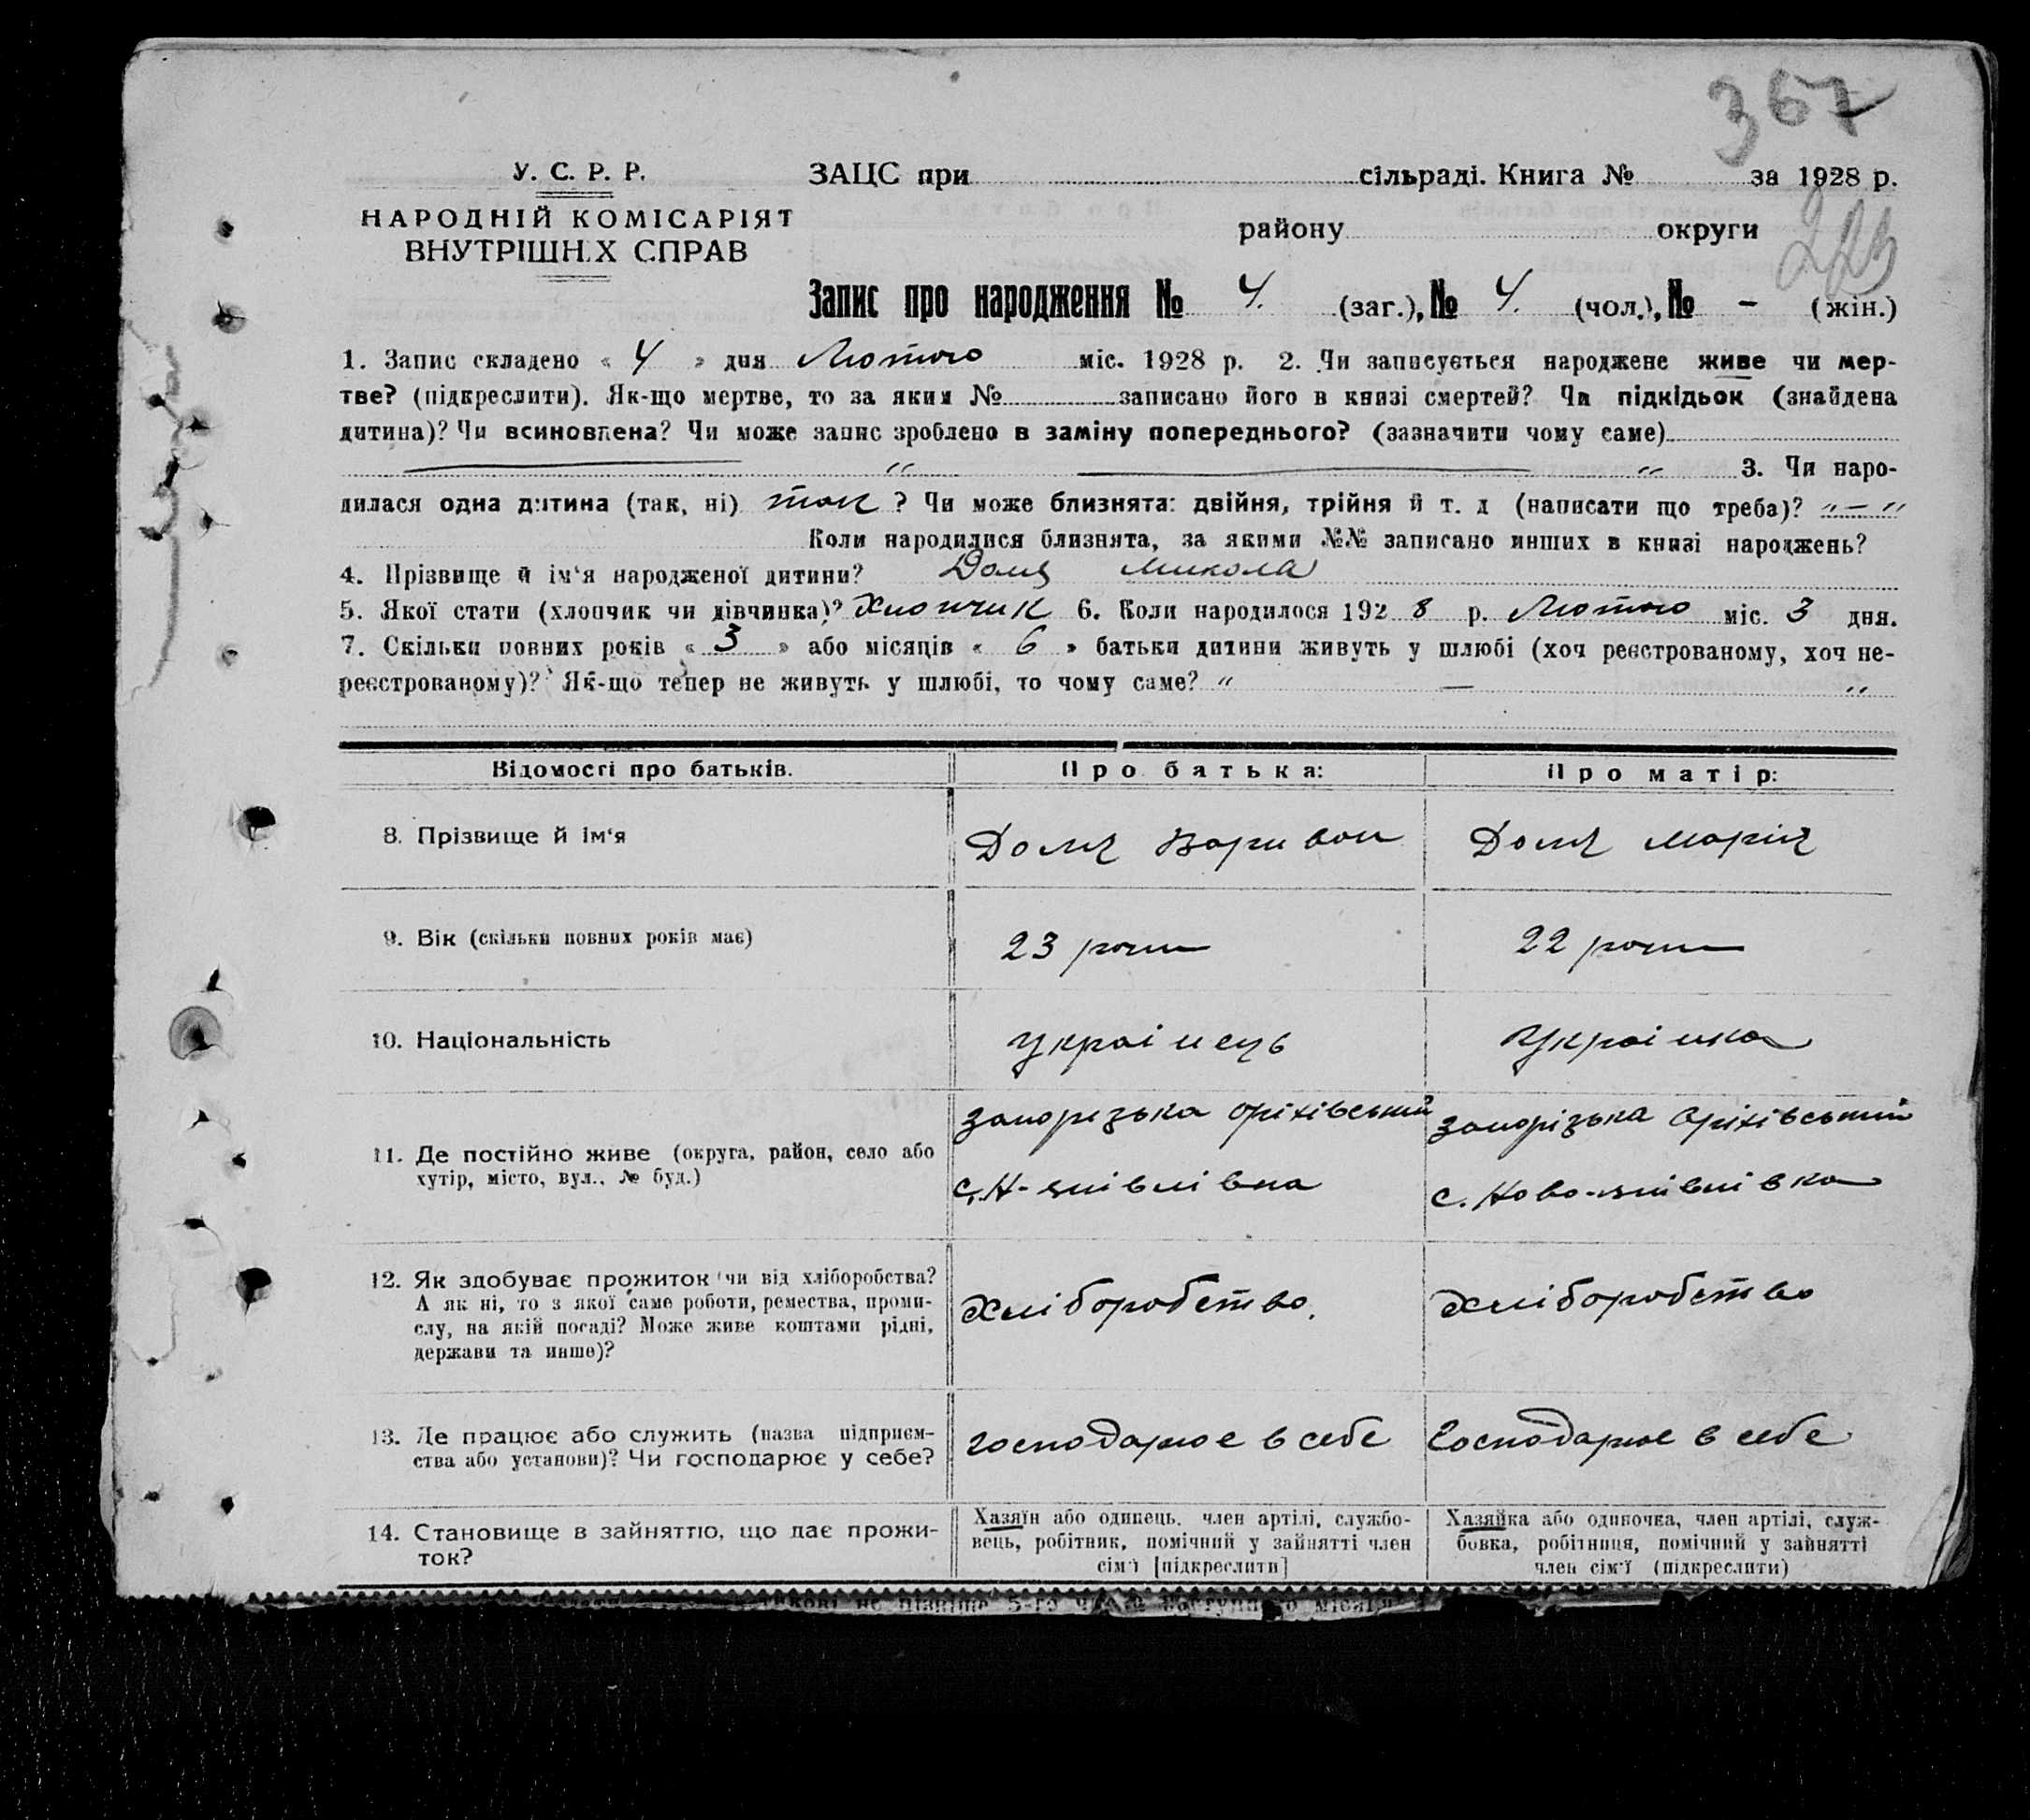 367
У. С. Р. Р.
ЗАЦС при сільраді. Книга № за 1928 р.
НАРОДНІЙ КОМІСАРІЯТ
ВНУТРІШН.Х СПРАВ
району округи
Запис про народження № 4. (заг.), № 4. (чол.), № - (жін.)
1. Запис складено « 4 » дня Лютого міс. 1928 р. 2. Чи записується народжене живе чи мер-
тве? (підкреслити). Як-що мертве, то за яким № записано його в книзі смертей? Чи підкідьок (знайдена
дитина)? Чи всиновлена? Чи може запис зроблено в заміну попереднього? (зазначити чому саме)
— " — " 3. Чи наро-
дилася одна дитина (так, ні) так ? Чи може близнята: двійня, трійня й т. д (написати що треба)? " — "
Коли народилися близнята, за якими №№ записано инших в книзі народжень?
4. Прізвище й ім'я народженої дитини? Доля Микола
5. Якої стати (хлопчик чи дівчинка)? Хлопчик 6. Коли народилося 1928 р. Лютого міс. 3 дня.
7. Скільки повних років « 3 » або місяців « 6 » батьки дитини живуть у шлюбі (хоч реєстрованому, хоч не-
реєстрованому)? Як-що тепер не живуть у шлюбі, то чому саме? " — "
Відомості про батьків. Про батька: Про матір:
8. Прізвище й ім'я Доля Варивон Доля Марія
9. Вік (скільки повних років має) 23 роки 22 роки
10. Національність Українець Українка
11. Де постійно живе (округа, район, село або
хутір, місто, вул., № буд.)
Запорізька Оріхівський
с. Н-
Запорізька Оріхівський
с. Ново-
12. Як здобуває прожиток чи від хліборобства?
А як ні, то з якої саме роботи, ремества, проми-
слу, на якій посаді? Може живе коштами рідні,
держави та инше)?
Хліборобство.
Хліборобство
13. Де працює або служить (назва підприєм-
ства або установи)? Чи господарює у себе?
господарює в себе
Господарює в себе
14. Становище в зайняттю, що дає прожи-
ток?
Хазяїн або одинець, член артілі, службо-
вець, робітник, помічний у зайнятті член
сім'ї [підкреслити]
Хазяйка або одиночка, член артілі, служ-
бовка, робітниця, помічний у зайнятті
член сім'ї (підкреслити)